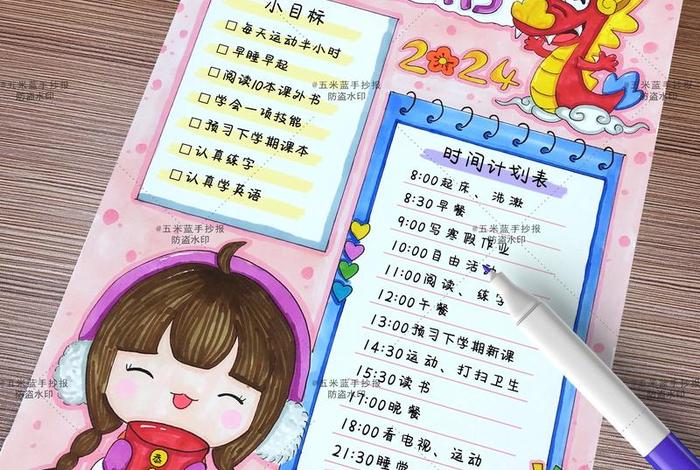 小目标
□每天运动半小时
□早睡早起
□阅读10本课外书
□学会一项技能
□预习下学期课本
□认真练字
□认真学英语
2024
时间计划表
8:00起床、洗漱
8:30早餐
9:00写寒假作业
10:00自由活
11:00阅读、练
12:00午餐
13:00预习下学期新课
14:30运动、打扫卫生
15:30读书
17:00晚餐
18:00看电视、运动
21:30睡觉
#五米蓝手抄报
防盗水印
#五米蓝手抄报
防盗水印
#五米蓝手抄报
防盗水印
#五米蓝手抄报
防盗水印
#五米蓝手抄报
防盗水印
#五米蓝手抄报
防盗水印
#五米蓝手抄报
防盗水印
#五米蓝手抄报
防盗水印